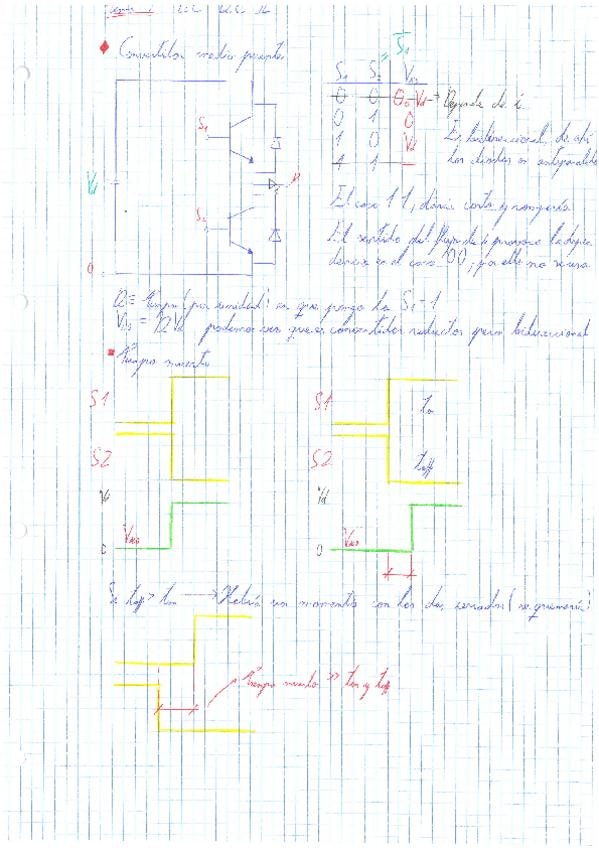 Convertidor medio puente
S̅₁
S₁ S₂ V₂₀
0 0 0 ó Vd → Depende de i
0 1 0
1 0 Vd
1 1 —
Es bidireccional, de ahí
los diodos en antiparalelo
S₁
S₂
Vd
0
El caso 11, daría corto y rompería
El sentido del flujo de i provoca la depen
dencia en el caso 00, por ello no se usa
tiempo (por unidad) en que pongo la S₁=1
podemos ver que es convertidor reductor pero bidireccional
Tiempo muerto
S1
S2
Vd
0
S1 ton
S2 toff
Vd
0
Si toff > ton → Habría un momento con los dos cerrados (se quemaría)
tiempo muerto >> ton y toff